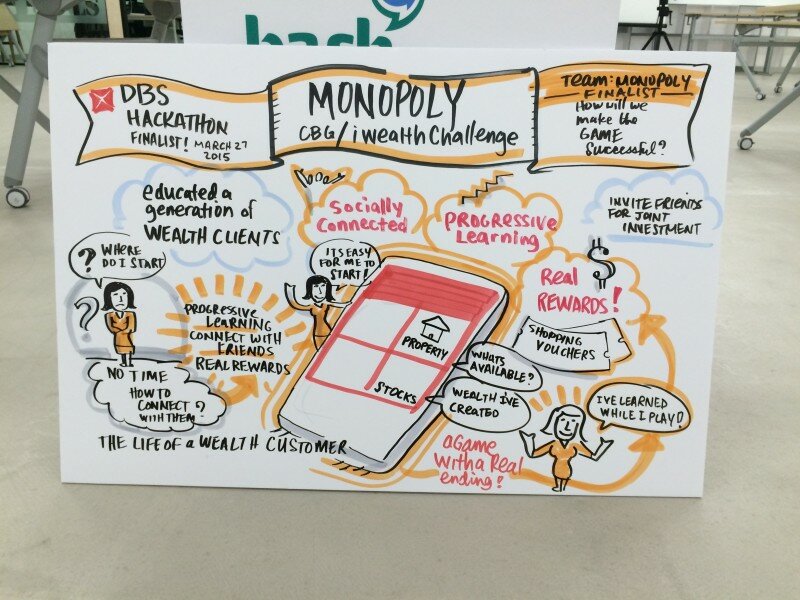 hash
DBS
HACKATHON
FINALIST! MARCH 27
2015
MONOPOLY
CBG/iWealth Challenge
TEAM: MONOPOLY
FINALIST
HOW will we
make the
GAME
Successful?
educated a
generation of
WEALTH CLIENTS
Socially
Connected
PROGRESSIVE
Learning
INVITE FRIENDS
FOR JOINT
INVESTMENT
? WHERE
DO I START
?
ITS EASY
FOR ME TO
START!
$
Real
REWARDS!
PROGRESSIVE
LEARNING
CONNECT WITH
FRIENDS
REAL REWARDS
PROPERTY
STOCKS
SHOPPING
VOUCHERS
WHATS
AVAILABLE?
WEALTH I'VE
CREATED
NO TIME
HOW TO
CONNECT ?
WITH THEM
I'VE LEARNED
WHILE I PLAY!
THE LIFE OF a WEALTH CUSTOMER
a Game
With a Real
ending!